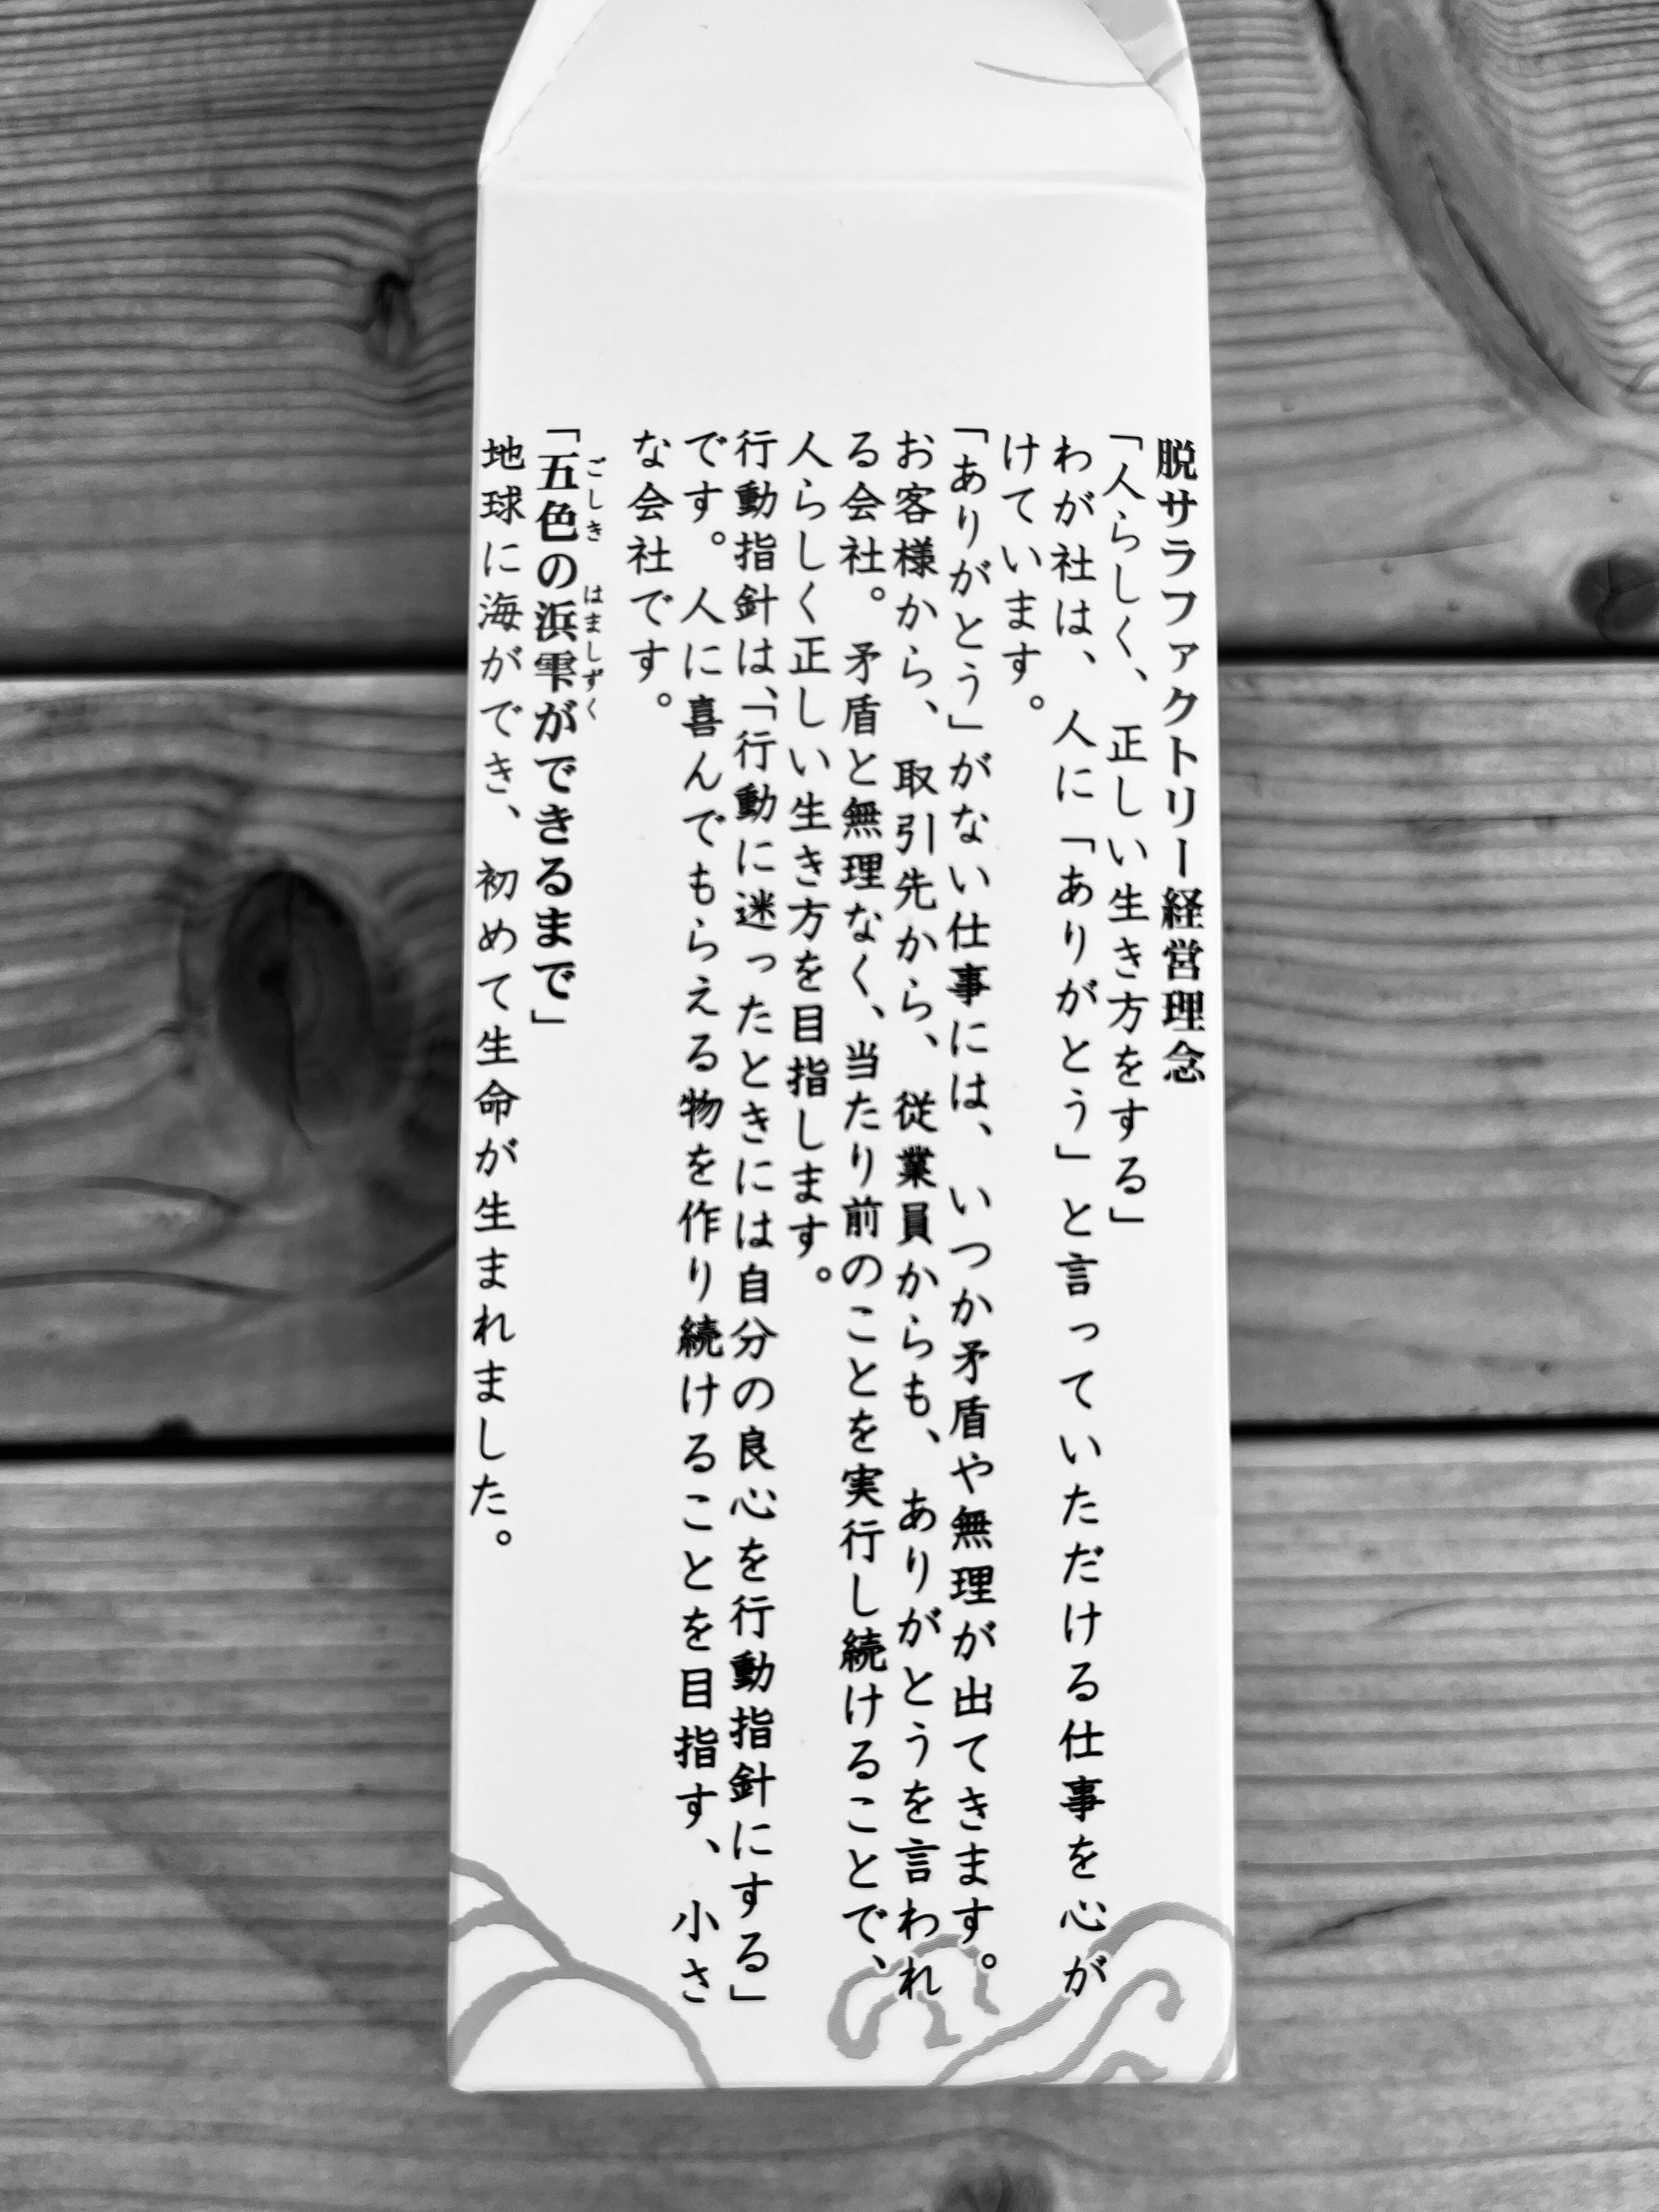 脱サラファクトリー経営理念
「人らしく、正しい生き方をする」
わが社は、人に「ありがとう」と言っていただける仕事を心が
けています。
「ありがとう」がない仕事には、いつか矛盾や無理が出てきます。
お客様から、取引先から、従業員からも、ありがとうを言われ
る会社。矛盾と無理なく、当たり前のことを実行し続けることで、
人らしく正しい生き方を目指します。
行動指針は、「行動に迷ったときには自分の良心を行動指針にする」
です。人に喜んでもらえる物を作り続けることを目指す、小さ
な会社です。
ごしき はましずく
「五色の浜雫ができるまで」
地球に海ができ、初めて生命が生まれました。